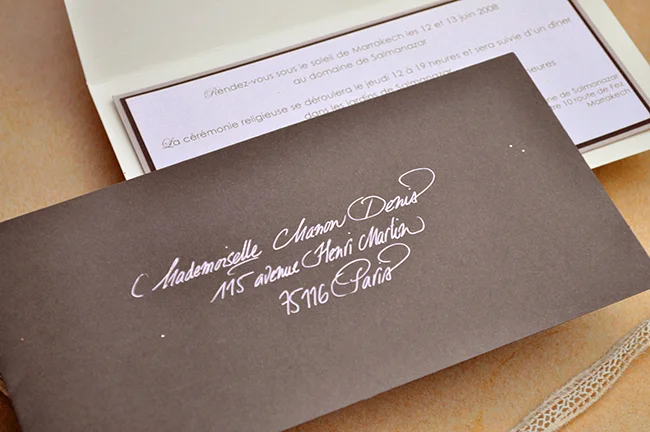 Rendez-vous sous le soleil de Marrakech les 12 et 13 juin 2008
au domaine de Salmanazar
La cérémonie religieuse se déroulera le jeudi 12 à 19 heures et sera suivie d'un dîner
dans les jardins de Salmanazar
heures
ne de Salmanazar
10 route de Fès
Marrakech
Mademoiselle Manon Denis
115 avenue Henri Martin
75116 Paris